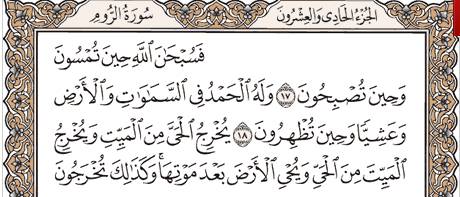 سُورَةُ الرُّومِ الجُزءُ الحَادِى وَالعِشْرُونَ
فَسُبْحَٰنَ ٱللَّهِ حِينَ تُمْسُونَ
وَحِينَ تُصْبِحُونَ ١٧ وَلَهُ ٱلْحَمْدُ فِى ٱلسَّمَٰوَٰتِ وَٱلْأَرْضِ
وَعَشِيًّا وَحِينَ تُظْهِرُونَ ١٨ يُخْرِجُ ٱلْحَىَّ مِنَ ٱلْمَيِّتِ وَيُخْرِجُ
ٱلْمَيِّتَ مِنَ ٱلْحَىِّ وَيُحْىِ ٱلْأَرْضَ بَعْدَ مَوْتِهَا ۚ وَكَذَٰلِكَ تُخْرَجُونَ